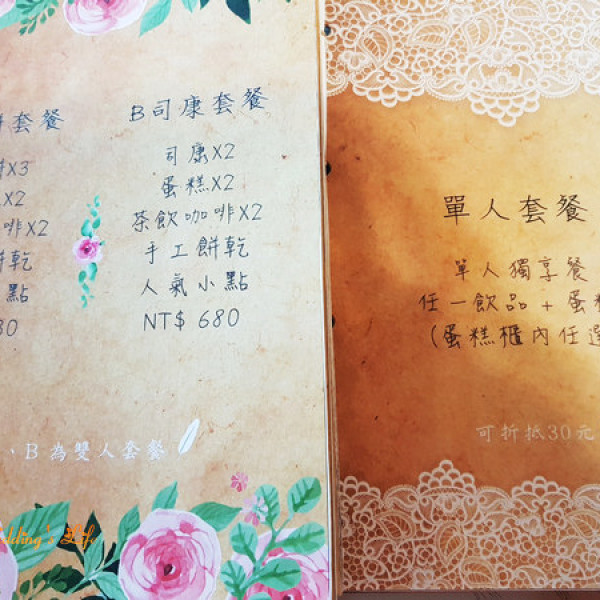 套餐
X3
X2
啡X2
餅乾
點
80
B司康套餐
司康X2
蛋糕X2
茶飲咖啡X2
手工餅乾
人氣小點
NT$ 680
、B為雙人套餐
單人套餐
單人獨享餐
任一飲品 + 蛋糕
(蛋糕櫃內任選
可折抵30元
dding's Life